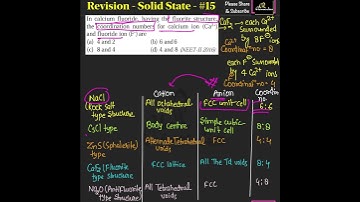 Revision - Solid State - #15
Please Share
& Subscribe
In calcium fluoride, having the fluorite structure,
the coordination numbers for calcium ion (Ca²⁺)
and fluoride ion (F⁻) are
(a) 4 and 2 (b) 6 and 6
(c) 8 and 4 (d) 4 and 8 (NEET-II 2016)
CaF₂ → each Ca²⁺
Surrounded
by 8 F⁻ ions
Ca²⁺
Coordinatⁿ no = 8
each F⁻ surrounded
by 4 Ca²⁺ ions
F⁻ Coordinatⁿ no = 4
Cation Anion Coordination no.
NaCl
(Rock Salt
type Structure
All octahedral
voids
FCC unit cell
6:6
CsCl type
Body Centre
Simple cubic
unit cell
8:8
ZnS (Sphalerite)
type
Alternate Tetrahedral
voids
FCC
4:4
CaF₂ (Fluorite
type Structure
FCC lattice
All The Td voids
8:4
Na₂O (Antifluorite)
type Structure
All Tetrahedral
voids
FCC
4:8